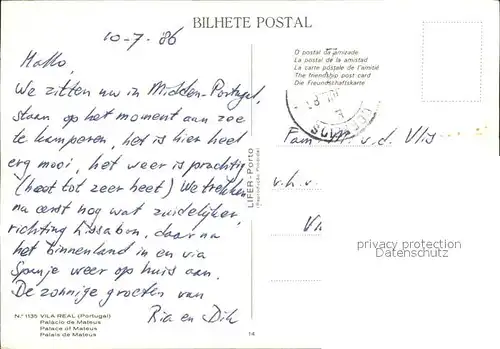 BILHETE POSTAL
10-7.'86
Hallo,
We zitten nu in Midden-Portugal,
staan op het moment aan zee
te kamperen, het is hier heel
erg mooi, het weer is prachtig
(heet tot zeer heet) We trekken
nu eerst nog wat zuidelijker,
richting Lissabon, daarna
het binnenland in en via
Spanje weer op huis aan.
De zonnige groeten van
Ria en Dik
N.º 1135 VILA REAL (Portugal)
Palácio de Mateus
Palace of Mateus
Palais de Mateus
LIFER-Porto
14
O postal da amizade
La postal de la amistad
La carte postale de l'amitié
The friendship post card
Die Freundschaftskarte
Fam. M. v.d. Vlis
v.h.v.
privacy protection
Datenschutz